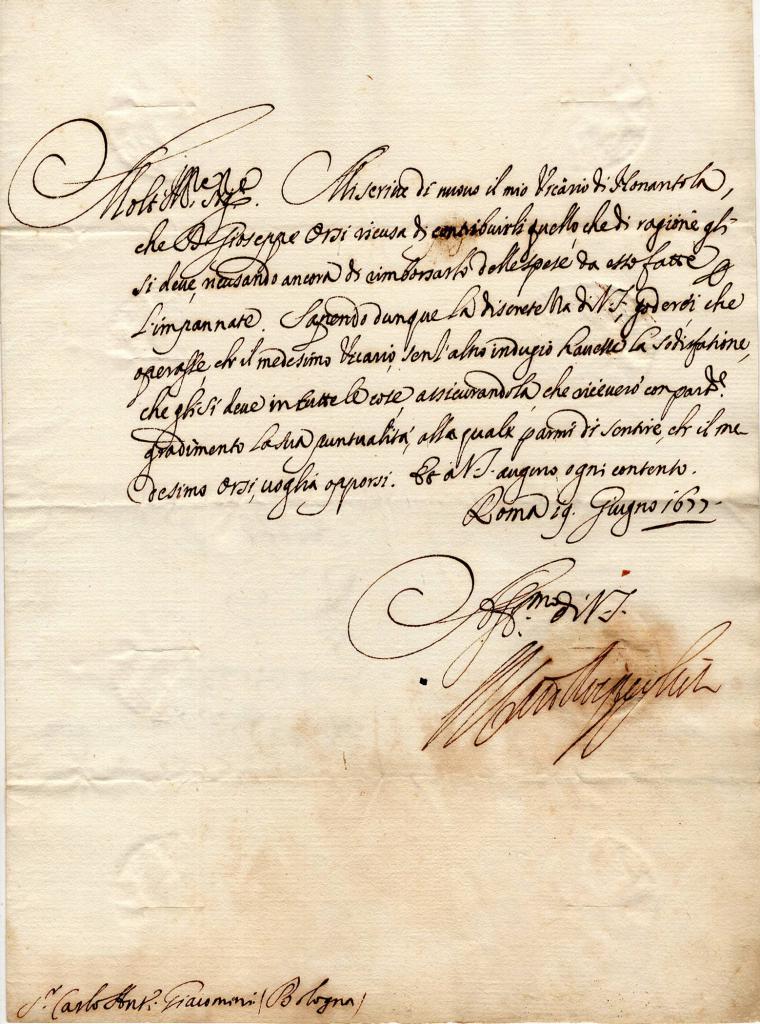 Molto Ill.re Sig.re. Mi scrive di nuovo il mio Vicario di Nonantola,
che D. Gioseppe Orsi ricusa di contribuirli quello, che di ragione gli
si deve, ricusando ancora di rimborsarlo delle spese da esso fatte
L'impannate. Sapendo dunque la discretezza di V.S., goderei che
operasse, ch'il medesimo Vicario, senz'altro indugio havesse la sodisfatione,
che gli si deve in tutte le cose, assicurandola, che riceverò con part.re
gradimento la sua puntualità, alla quale parmi di sentire, ch'il me
desimo Orsi, voglia opporsi. Et a V.S. auguro ogni contento.
Roma 19. Giugno 1677.
Aff.mo di V.S.
S.r Carlo Ant.o Giacomini (Bologna)